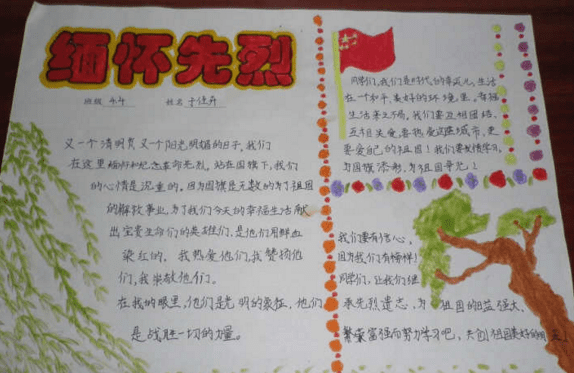 缅怀先烈
班级 4.4 姓名
又一个清明节又一个阳光明媚的日子,我们
在这里缅怀和纪念革命先烈。站在国旗下,我们
的心情是沉重的。因为国旗是无数的为了祖国
的解放事业,为了我们今天的幸福生活献
出宝贵生命们的英雄们,是他们用鲜血
染红的,我热爱他们,我赞扬他
们,我崇敬他们。
在我的眼里,他们是光明的象征,他们
是战胜一切的力量。
同学们,我们是时代的幸运儿,生活
在一个和平、美好的环境里。幸福
生活来之不易,我们要互相团结,
互相关爱
要爱自己的祖国!我们要发愤学习,
为国旗添彩,为祖国争光!
我们要有信心,
因为我们有榜样!
同学们,让我们继
承先烈遗志,为祖国的日益强大、
繁荣富强而努力学习吧,共创祖国美好的明天。